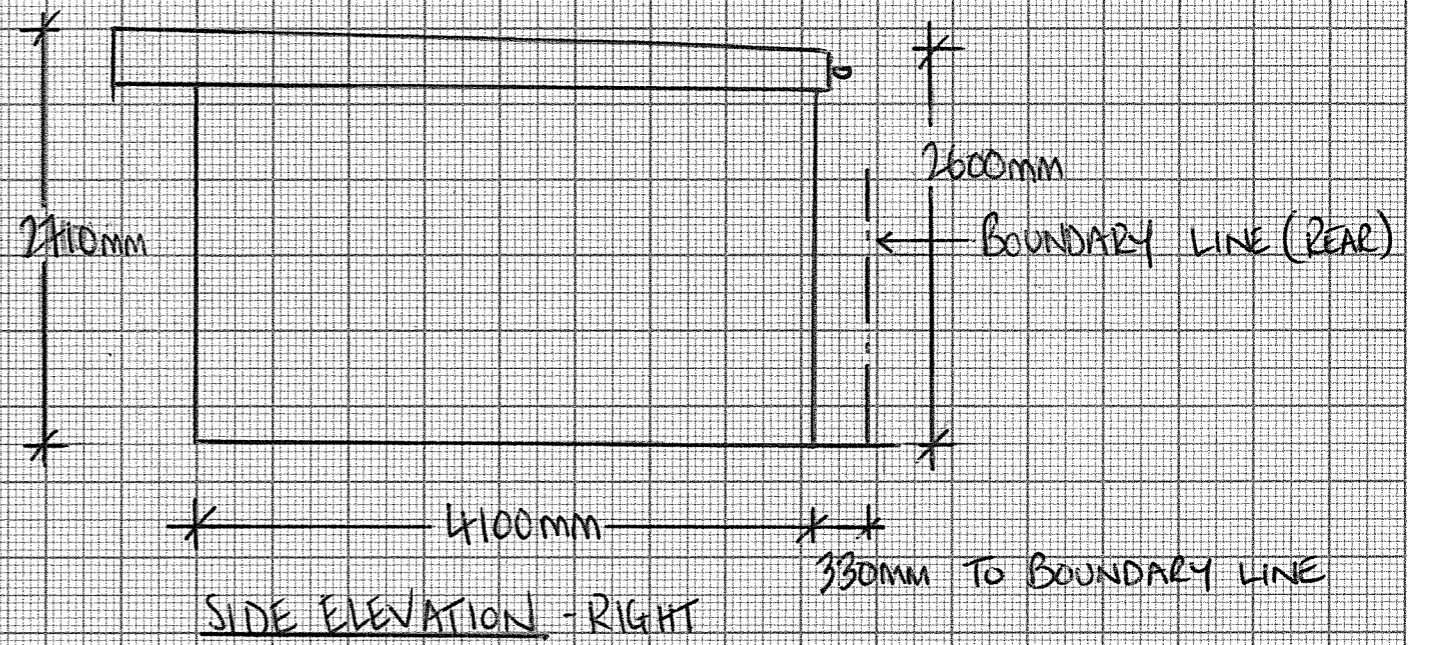 2600mm
2710mm
BOUNDARY LINE (REAR)
4100mm
330mm TO BOUNDARY LINE
SIDE ELEVATION - RIGHT